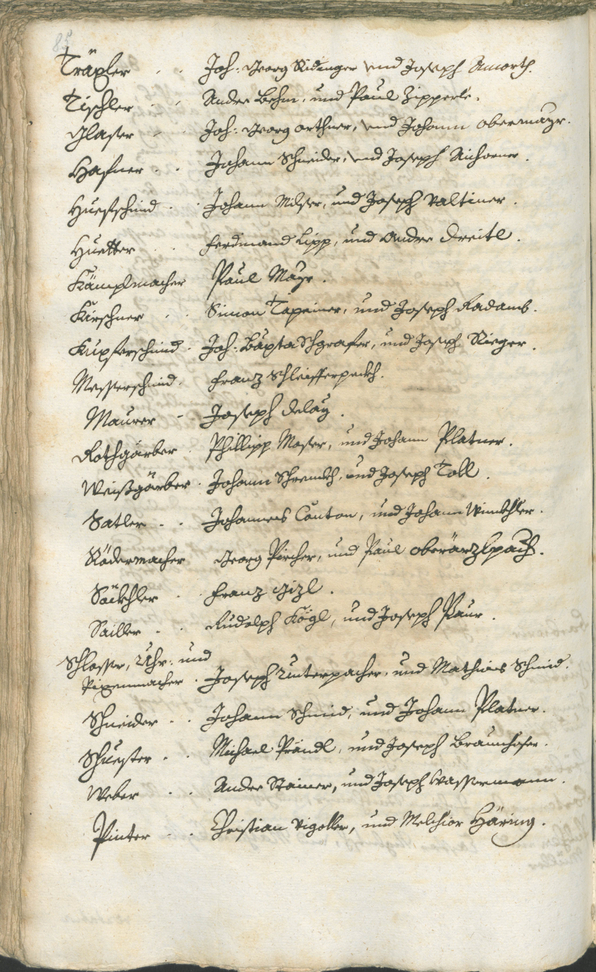 85
Träxler . . Joh: Georg Ridinger und Joseph Amorth.
Tischler . . Andre Behm, und Paul Zipperle.
Glaser . . Joh: Georg orthner, und Johann obermayr.
Hafner . . Johann Schneider, und Joseph Aichorner.
Huefschmid . Johann Milser, und Joseph Valtiner.
Huetter . Ferdinand Lipp, und Andre Dreitl.
Kämplmacher Paul Mayr.
Kirschner . . Simon Tapeiner, und Joseph Kadamb.
Kupferschmid . Joh: Bapta Schgrafer, und Joseph Rieger.
Messerschmid . Franz Schleifferpeckh.
Maurer . Joseph Delay.
Rothgärber . Phillipp Moser, und Johann Platner.
Weißgärber . Johann Schrenckh und Joseph Toll.
Satler . . Johannes Canton, und Johann Winckhler.
Rädermacher Georg Pircher, und Paul oberärzlpach.
Säckhler . . Franz Gizl.
Sailler . . Rudolph Kögl, und Joseph Paur.
Schlosser, Uhr: und
Pixenmacher . Joseph Unterpacher, und Mathias Schmid.
Schneider . . Johann Schmid, und Johann Platner.
Schuester . . Michael Prändl, und Joseph Braunhofer.
Weber . . Andre Stainer, und Joseph Wassermann.
Pinter . . Christian Vigoller, und Melchior Häring.